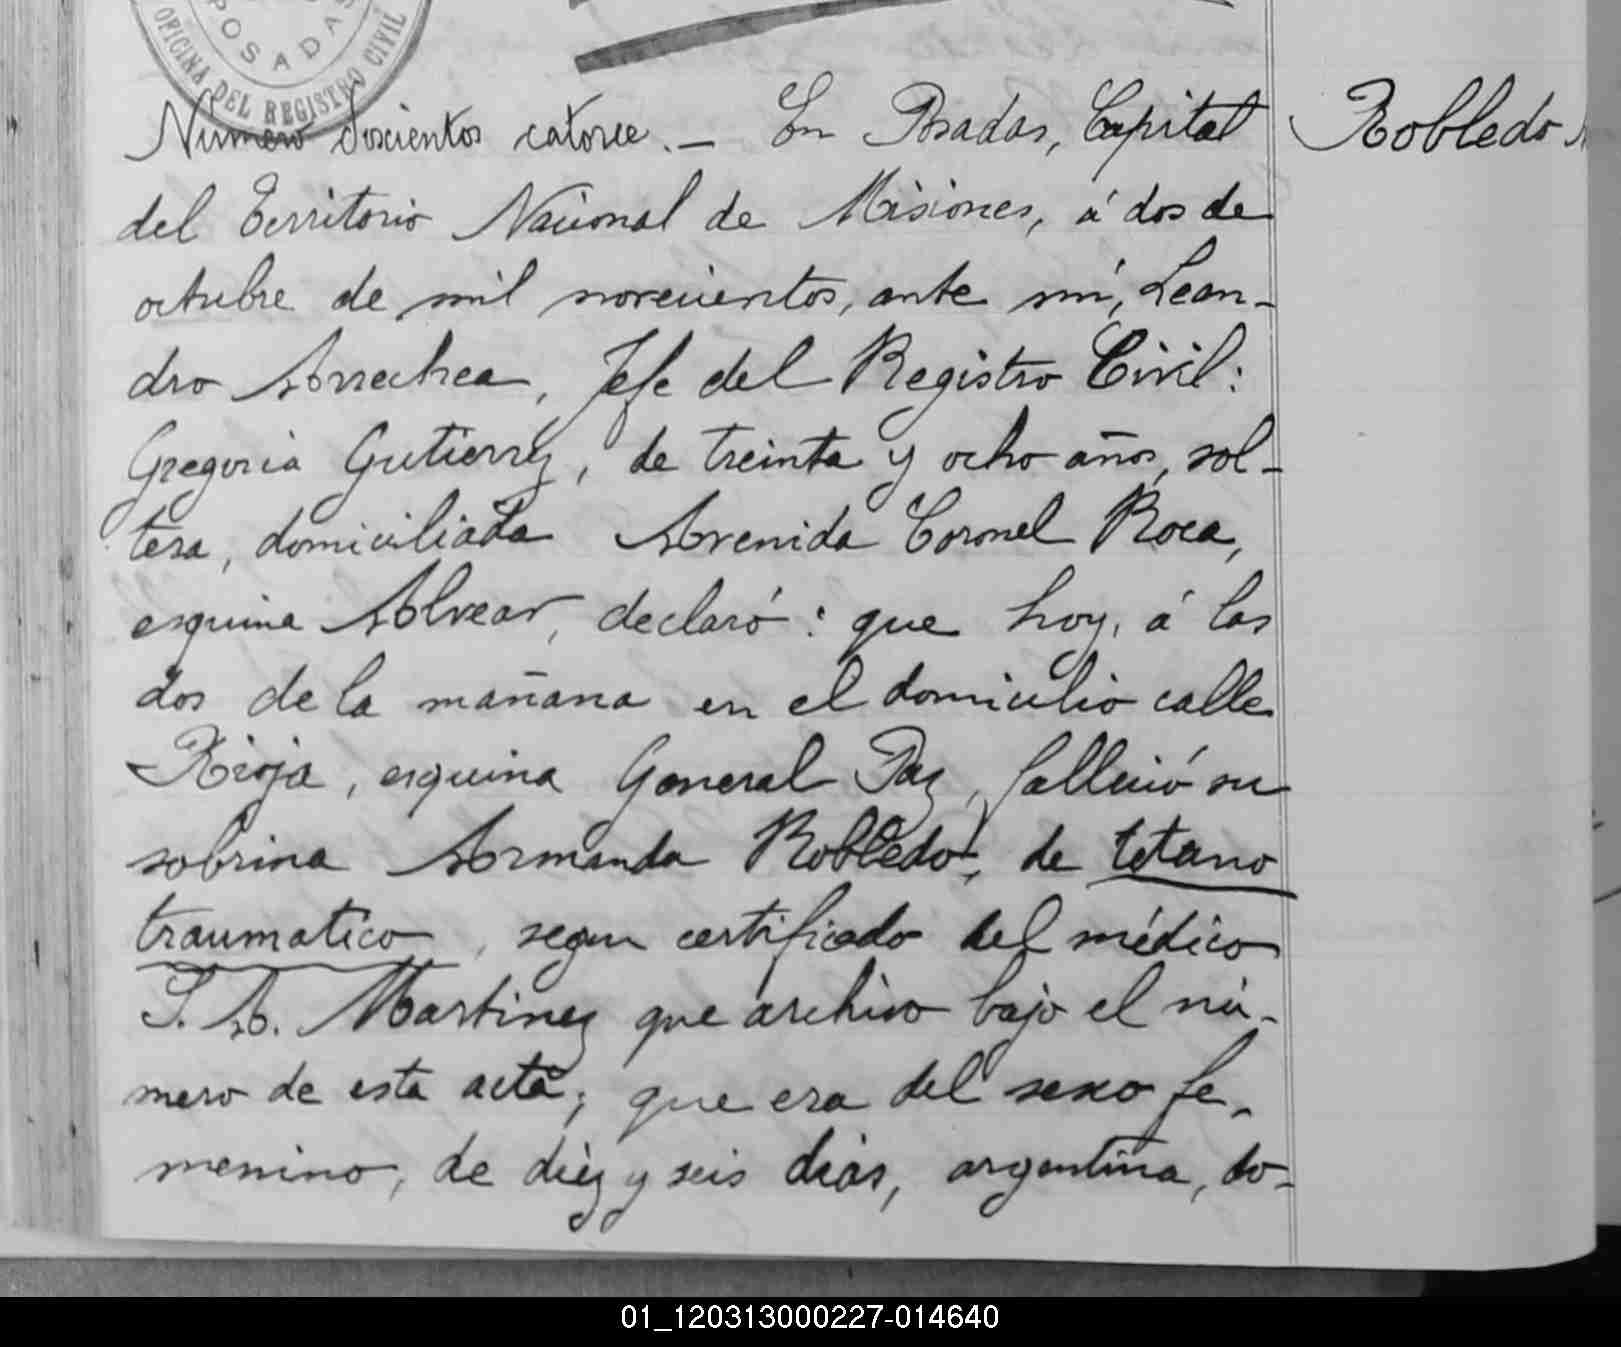 POSADAS
OFICINA DEL REGISTRO CIVIL
Número doscientos catorce.— En Posadas, Capital
Robledo
del Territorio Nacional de Misiones, á dos de
octubre de mil novecientos, ante mí, Lean-
dro Arrechea, Jefe del Registro Civil:
Gregoria Gutierrez, de treinta y ocho años, sol-
tera, domiciliada Avenida Coronel Roca,
esquina Alvear, declaró: que hoy, á las
dos de la mañana en el domicilio calle
Rioja, esquina General Paz, falleció su
sobrina Armanda Robledo, de tetano
traumatico, segun certificado del médico
S. A. Martinez que archivo bajo el nú-
mero de esta acta; que era del sexo fe-
menino, de diez y seis dias, argentina, do-
01_120313000227-014640